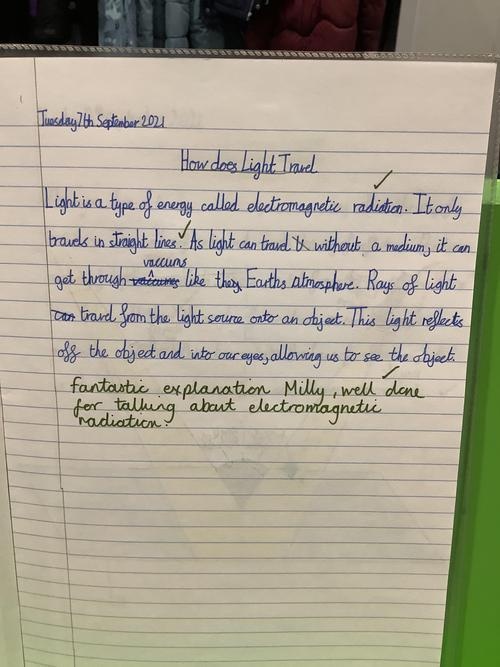 Tuesday 7th September 2021
How does Light Travel
Light is a type of energy called electromagnetic radiation. It only
travels in straight lines. As light can travel without a medium, it can
vaccums
get through vaccums like they Earths atmosphere. Rays of light
can travel from the light source onto an object. This light reflects
off the object and into our eyes, allowing us to see the object.
fantastic explanation Milly, well done
for talking about electromagnetic
radiation.